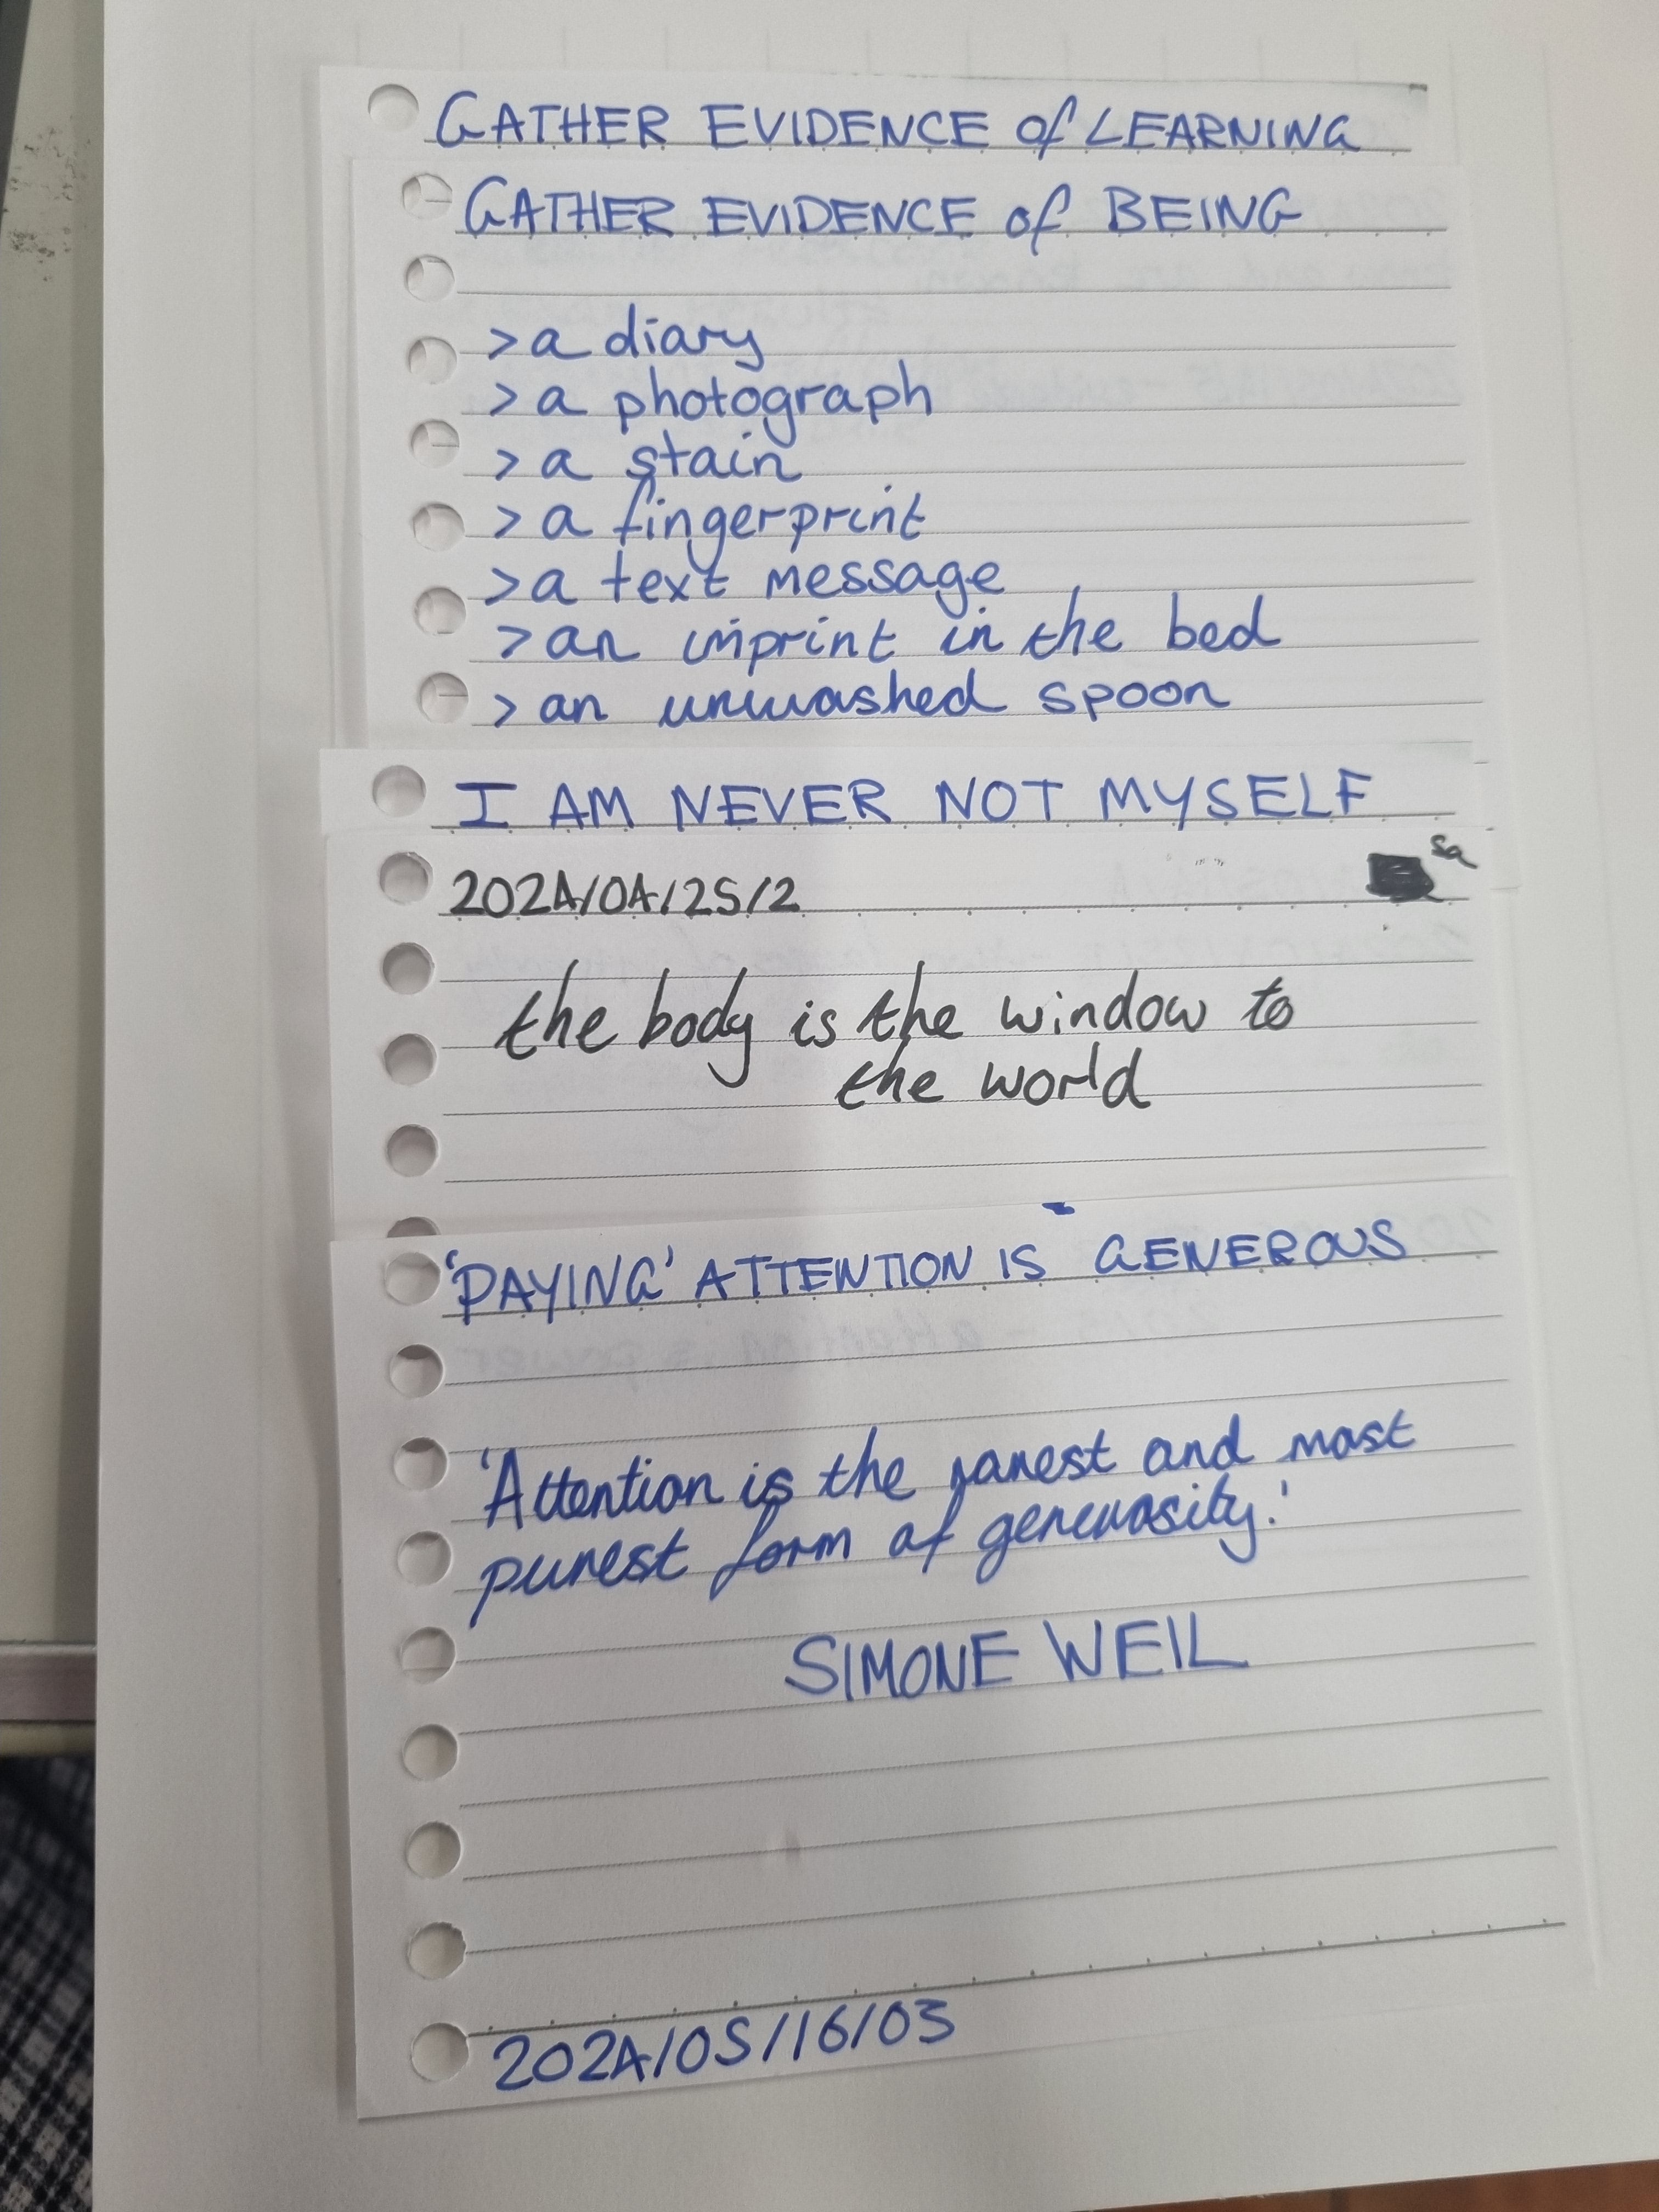 GATHER EVIDENCE of LEARNING
GATHER EVIDENCE of BEING
> a diary
> a photograph
> a stain
> a fingerprint
> a text message
> an imprint in the bed
> an unwashed spoon
I AM NEVER NOT MYSELF
2024/04/25/2
the body is the window to
the world
'PAYING' ATTENTION IS GENEROUS
'Attention is the rarest and most
purest form of generosity.'
SIMONE WEIL
2024/05/16/03